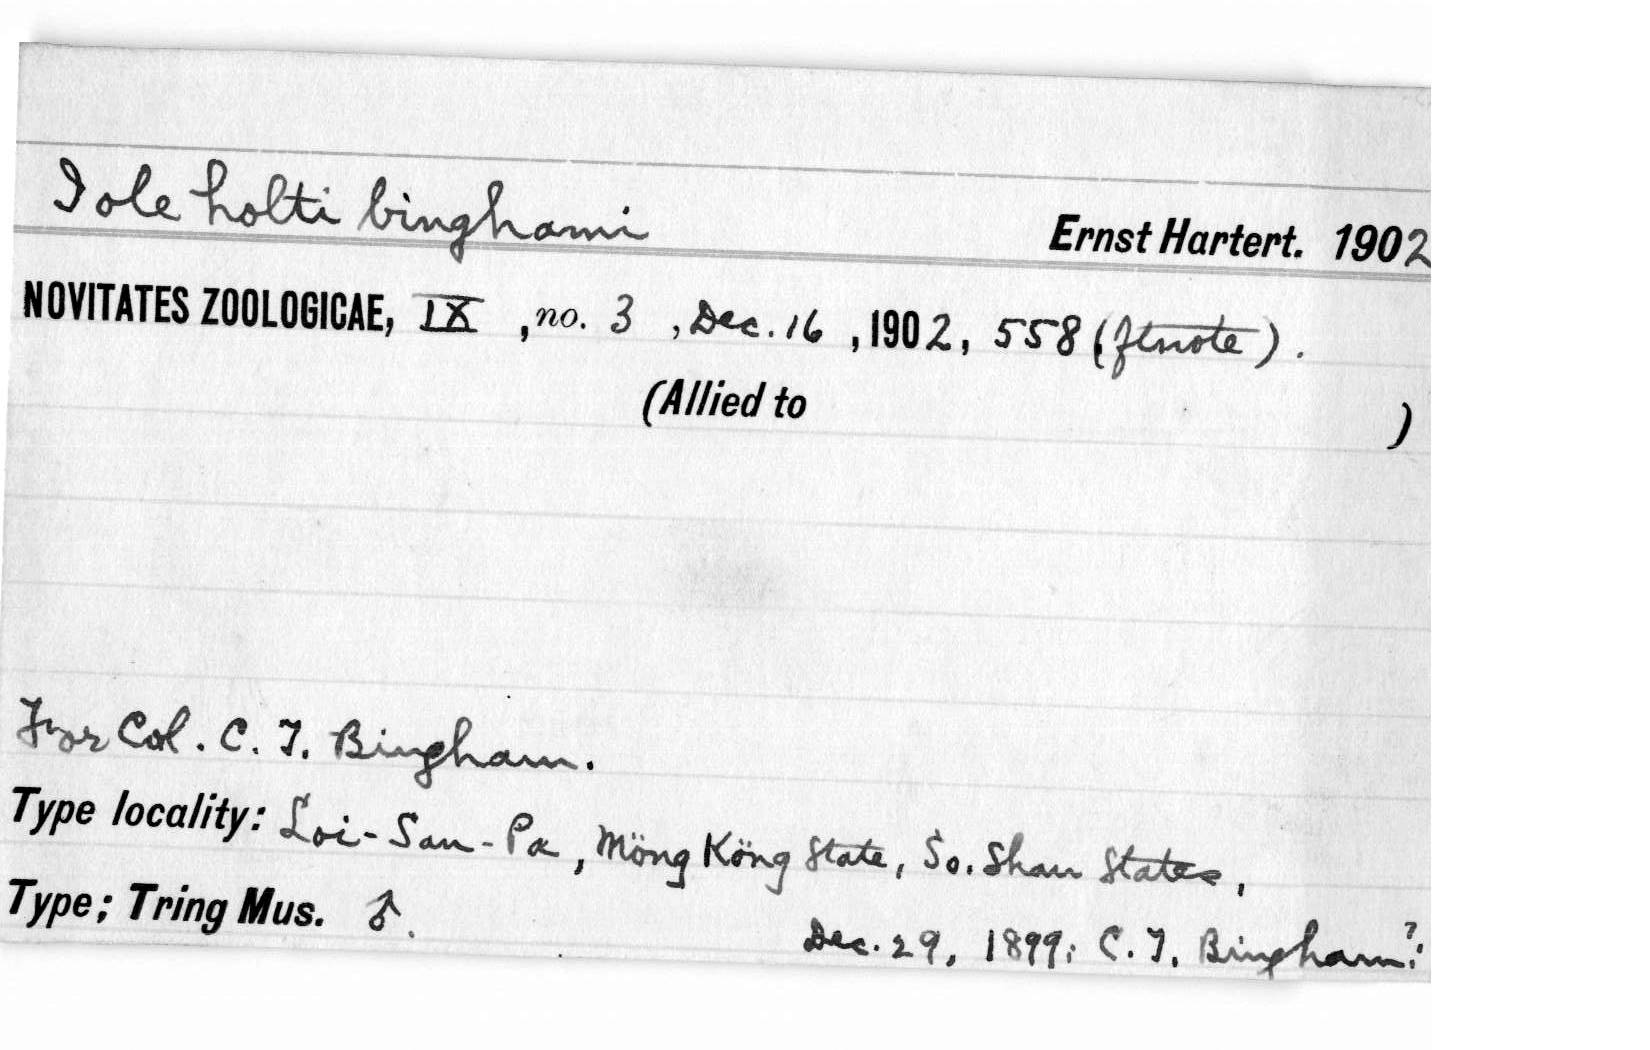 Iole holti binghami Ernst Hartert. 1902
NOVITATES ZOOLOGICAE, IX, no. 3, Dec. 16, 1902, 558 (ftnote).
(Allied to )
For Col. C. T. Bingham.
Type locality: Loi-San-Pa, Möng Köng State, So. Shan States,
Type; Tring Mus. ♂. Dec. 29, 1899; C. T. Bingham?.